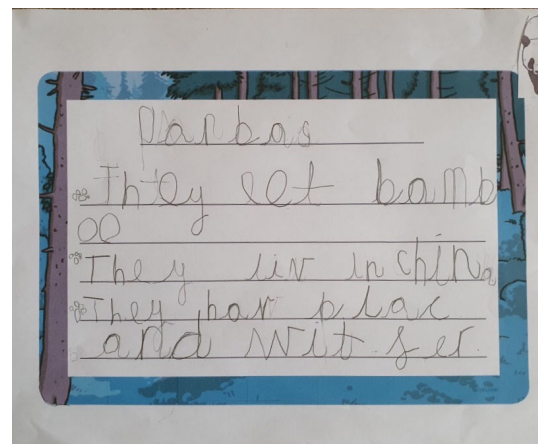 Panbas
They eet bamb
oo
They liv in china
They hav plac
and wit fer.